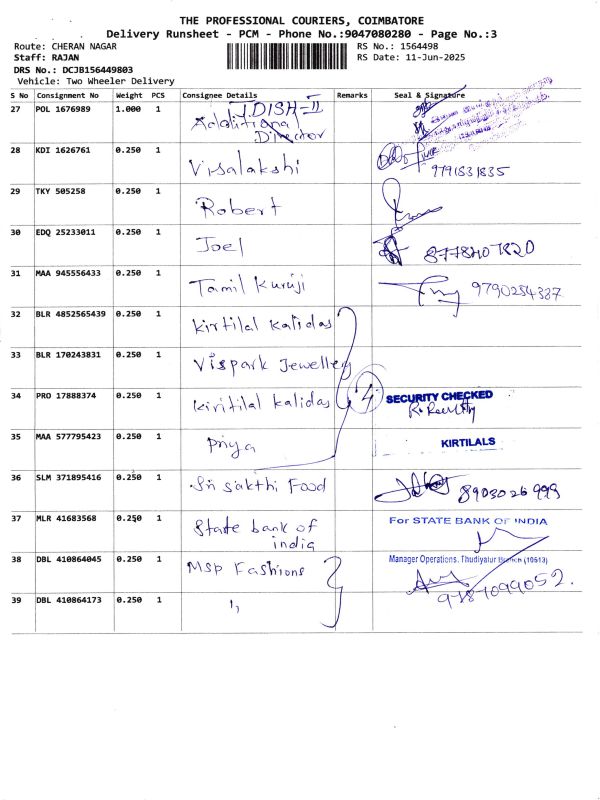 THE PROFESSIONAL COURIERS, COIMBATORE
Delivery Runsheet - PCM - Phone No.:9047080280 - Page No.:3
Route: CHERAN NAGAR
RS No.: 1564498
Staff: RAJAN
RS Date: 11-Jun-2025
DRS No.: DCJB156449803
Vehicle: Two Wheeler Delivery
S No Consignment No Weight PCS Consignee Details Remarks Seal & Signature
27 POL 1676989 1.000 1 J.DISH-II
Additional
Director
28 KDI 1626761 0.250 1 Visalakshi 9791831835
29 TKY 505258 0.250 1 Robert
30 EDQ 25233011 0.250 1 Joel
31 MAA 945556433 0.250 1 Tamil Kuruji 9790254337
32 BLR 4852565439 0.250 1 Kirtilal Kalidas
33 BLR 170243831 0.250 1 Vispark Jewellery
34 PRO 17888374 0.250 1 Kiritilal Kalidas 4 SECURITY CHECKED
35 MAA 577795423 0.250 1 Priya KIRTILALS
36 SLM 371895416 0.250 1 Sri Sakthi Food 8903026999
37 MLR 41683568 0.250 1 State bank of
india
For STATE BANK OF INDIA
38 DBL 410864045 0.250 1 MSP Fashions Manager Operations, Thudiyalur Branch (10513)
39 DBL 410864173 0.250 1 "